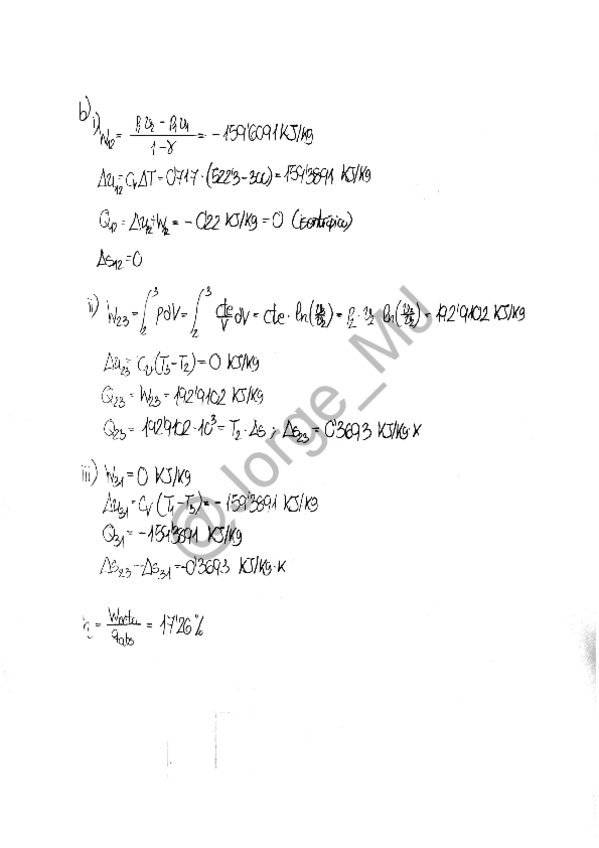 b)
i) W12 = (P2 v2 − P1 v1)/(1−γ) = −159'6091 KJ/kg
Δu12 = Cv ΔT = 0'717 · (522'3−300) = 159'3891 KJ/kg
Q12 = Δu12 + W12 = −0'22 KJ/kg = 0 (isentrópico)
Δs12 = 0
ii) W23 = ∫₂³ pdV = ∫₂³ cte/V dV = cte · ln(v3/v2) = P2 · v2 ln(v3/v2) = 192'9102 KJ/kg
Δu23 = Cv(T3−T2) = 0 KJ/kg
Q23 = W23 = 192'9102 KJ/kg
Q23 = 192'9102·10³ = T2 · Δs ; Δs23 = 0'3693 KJ/kg·K
iii) W31 = 0 KJ/kg
Δu31 = Cv (T1−T3) = −159'3891 KJ/kg
Q31 = −159'3891 KJ/kg
Δs23 = Δs31 = −0'3693 KJ/kg·K
η = Wneto/qabs = 17'26 %
@Jorge_MJ